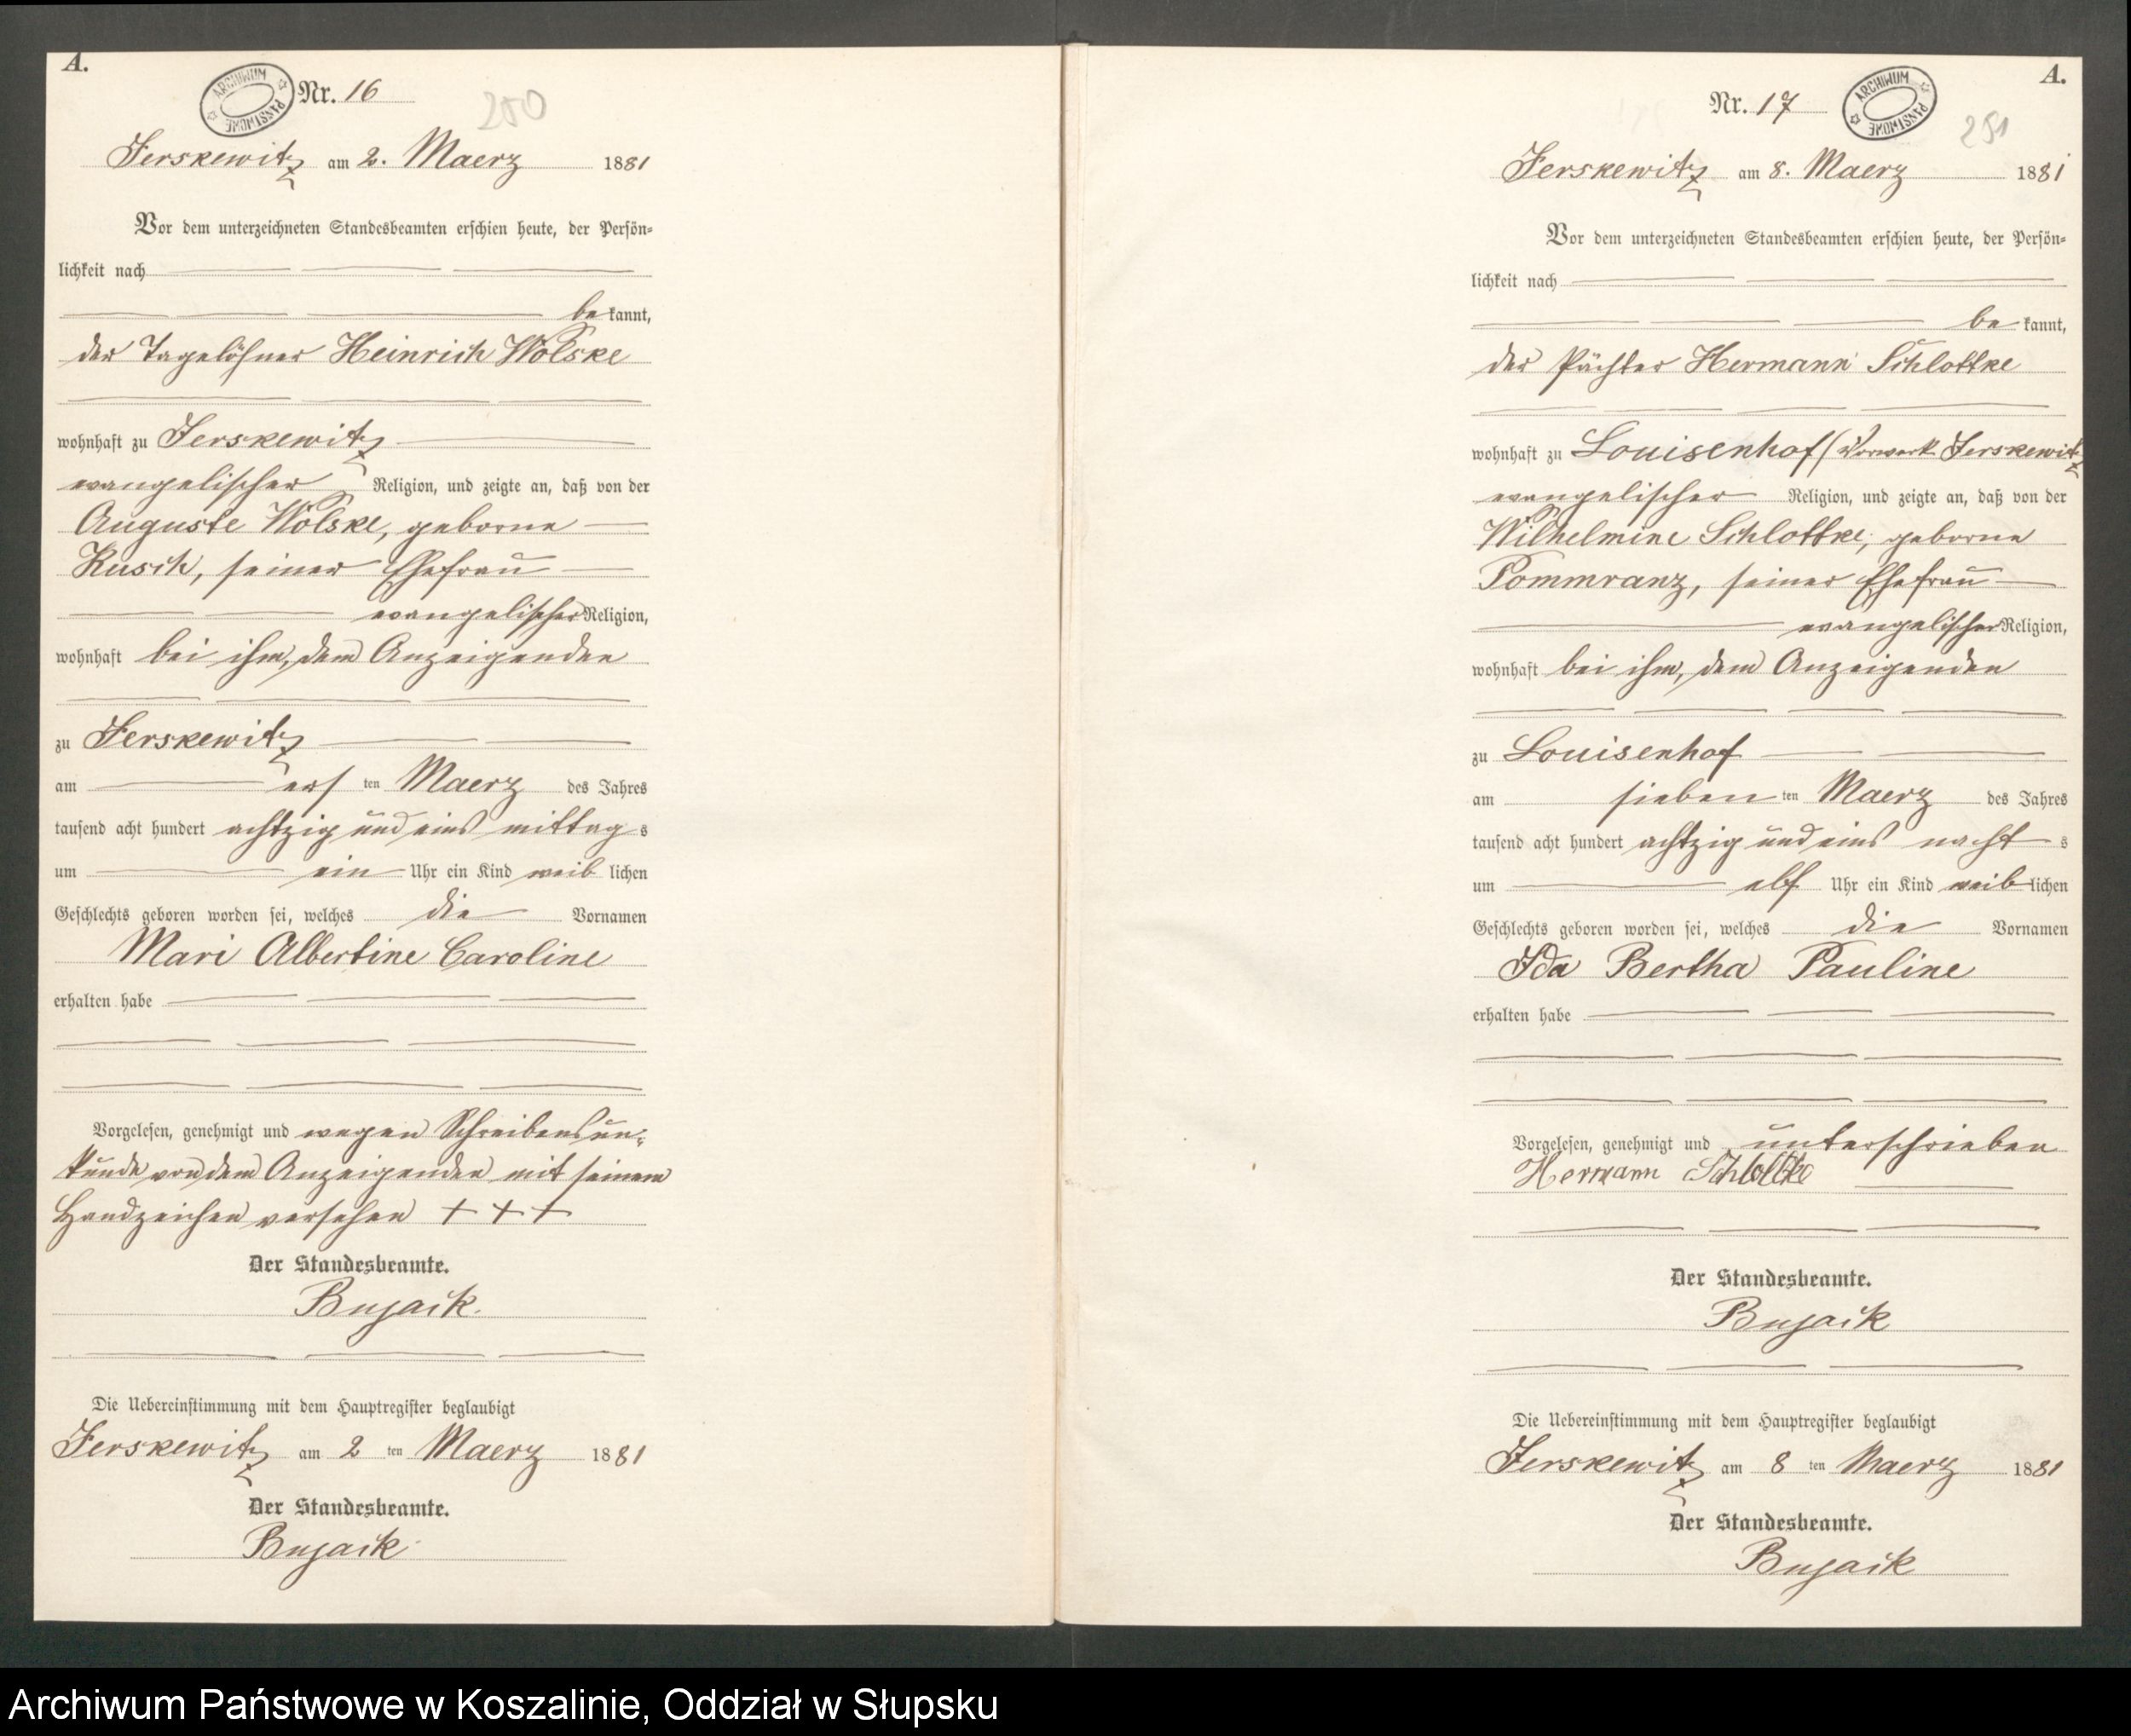 A.
ARCHIWUM PAŃSTWOWE
Nr. 16
250
Jerskewitz am 2. Maerz 1881
Vor dem unterzeichneten Standesbeamten erschien heute, der Persön-
lichkeit nach
be kannt,
der Tagelöhner Heinrich Wölske
wohnhaft zu Jerskewitz
evangelischer Religion, und zeigte an, daß von der
Auguste Wölske, geborne
Kusch, seiner Ehefrau
evangelischer Religion,
wohnhaft bei ihm, dem Anzeigenden
zu Jerskewitz
am ers ten Maerz des Jahres
tausend acht hundert achtzig und eins mittag s
um ein Uhr ein Kind weib lichen
Geschlechts geboren worden sei, welches die Vornamen
Mari Albertine Caroline
erhalten habe
Vorgelesen, genehmigt und wegen Schreibensun-
kunde von dem Anzeigenden mit seinem
Handzeichen versehen + + +
Der Standesbeamte.
Bujack.
Die Uebereinstimmung mit dem Hauptregister beglaubigt
Jerskewitz am 2 ten Maerz 1881
Der Standesbeamte.
Bujack
A.
Nr. 17
ARCHIWUM PAŃSTWOWE
251
Jerskewitz am 8. Maerz 1881
Vor dem unterzeichneten Standesbeamten erschien heute, der Persön-
lichkeit nach
be kannt,
der Pächter Hermann Schlottke
wohnhaft zu Louisenhof (Vorwerk Jerskewitz
evangelischer Religion, und zeigte an, daß von der
Wilhelmine Schlottke, geborne
Pommranz, seiner Ehefrau
evangelischer Religion,
wohnhaft bei ihm, dem Anzeigenden
zu Louisenhof
am sieben ten Maerz des Jahres
tausend acht hundert achtzig und eins nacht s
um elf Uhr ein Kind weib lichen
Geschlechts geboren worden sei, welches die Vornamen
Ida Bertha Pauline
erhalten habe
Vorgelesen, genehmigt und unterschrieben
Hermann Schlottke
Der Standesbeamte.
Bujack
Die Uebereinstimmung mit dem Hauptregister beglaubigt
Jerskewitz am 8 ten Maerz 1881
Der Standesbeamte.
Bujack
Archiwum Państwowe w Koszalinie, Oddział w Słupsku